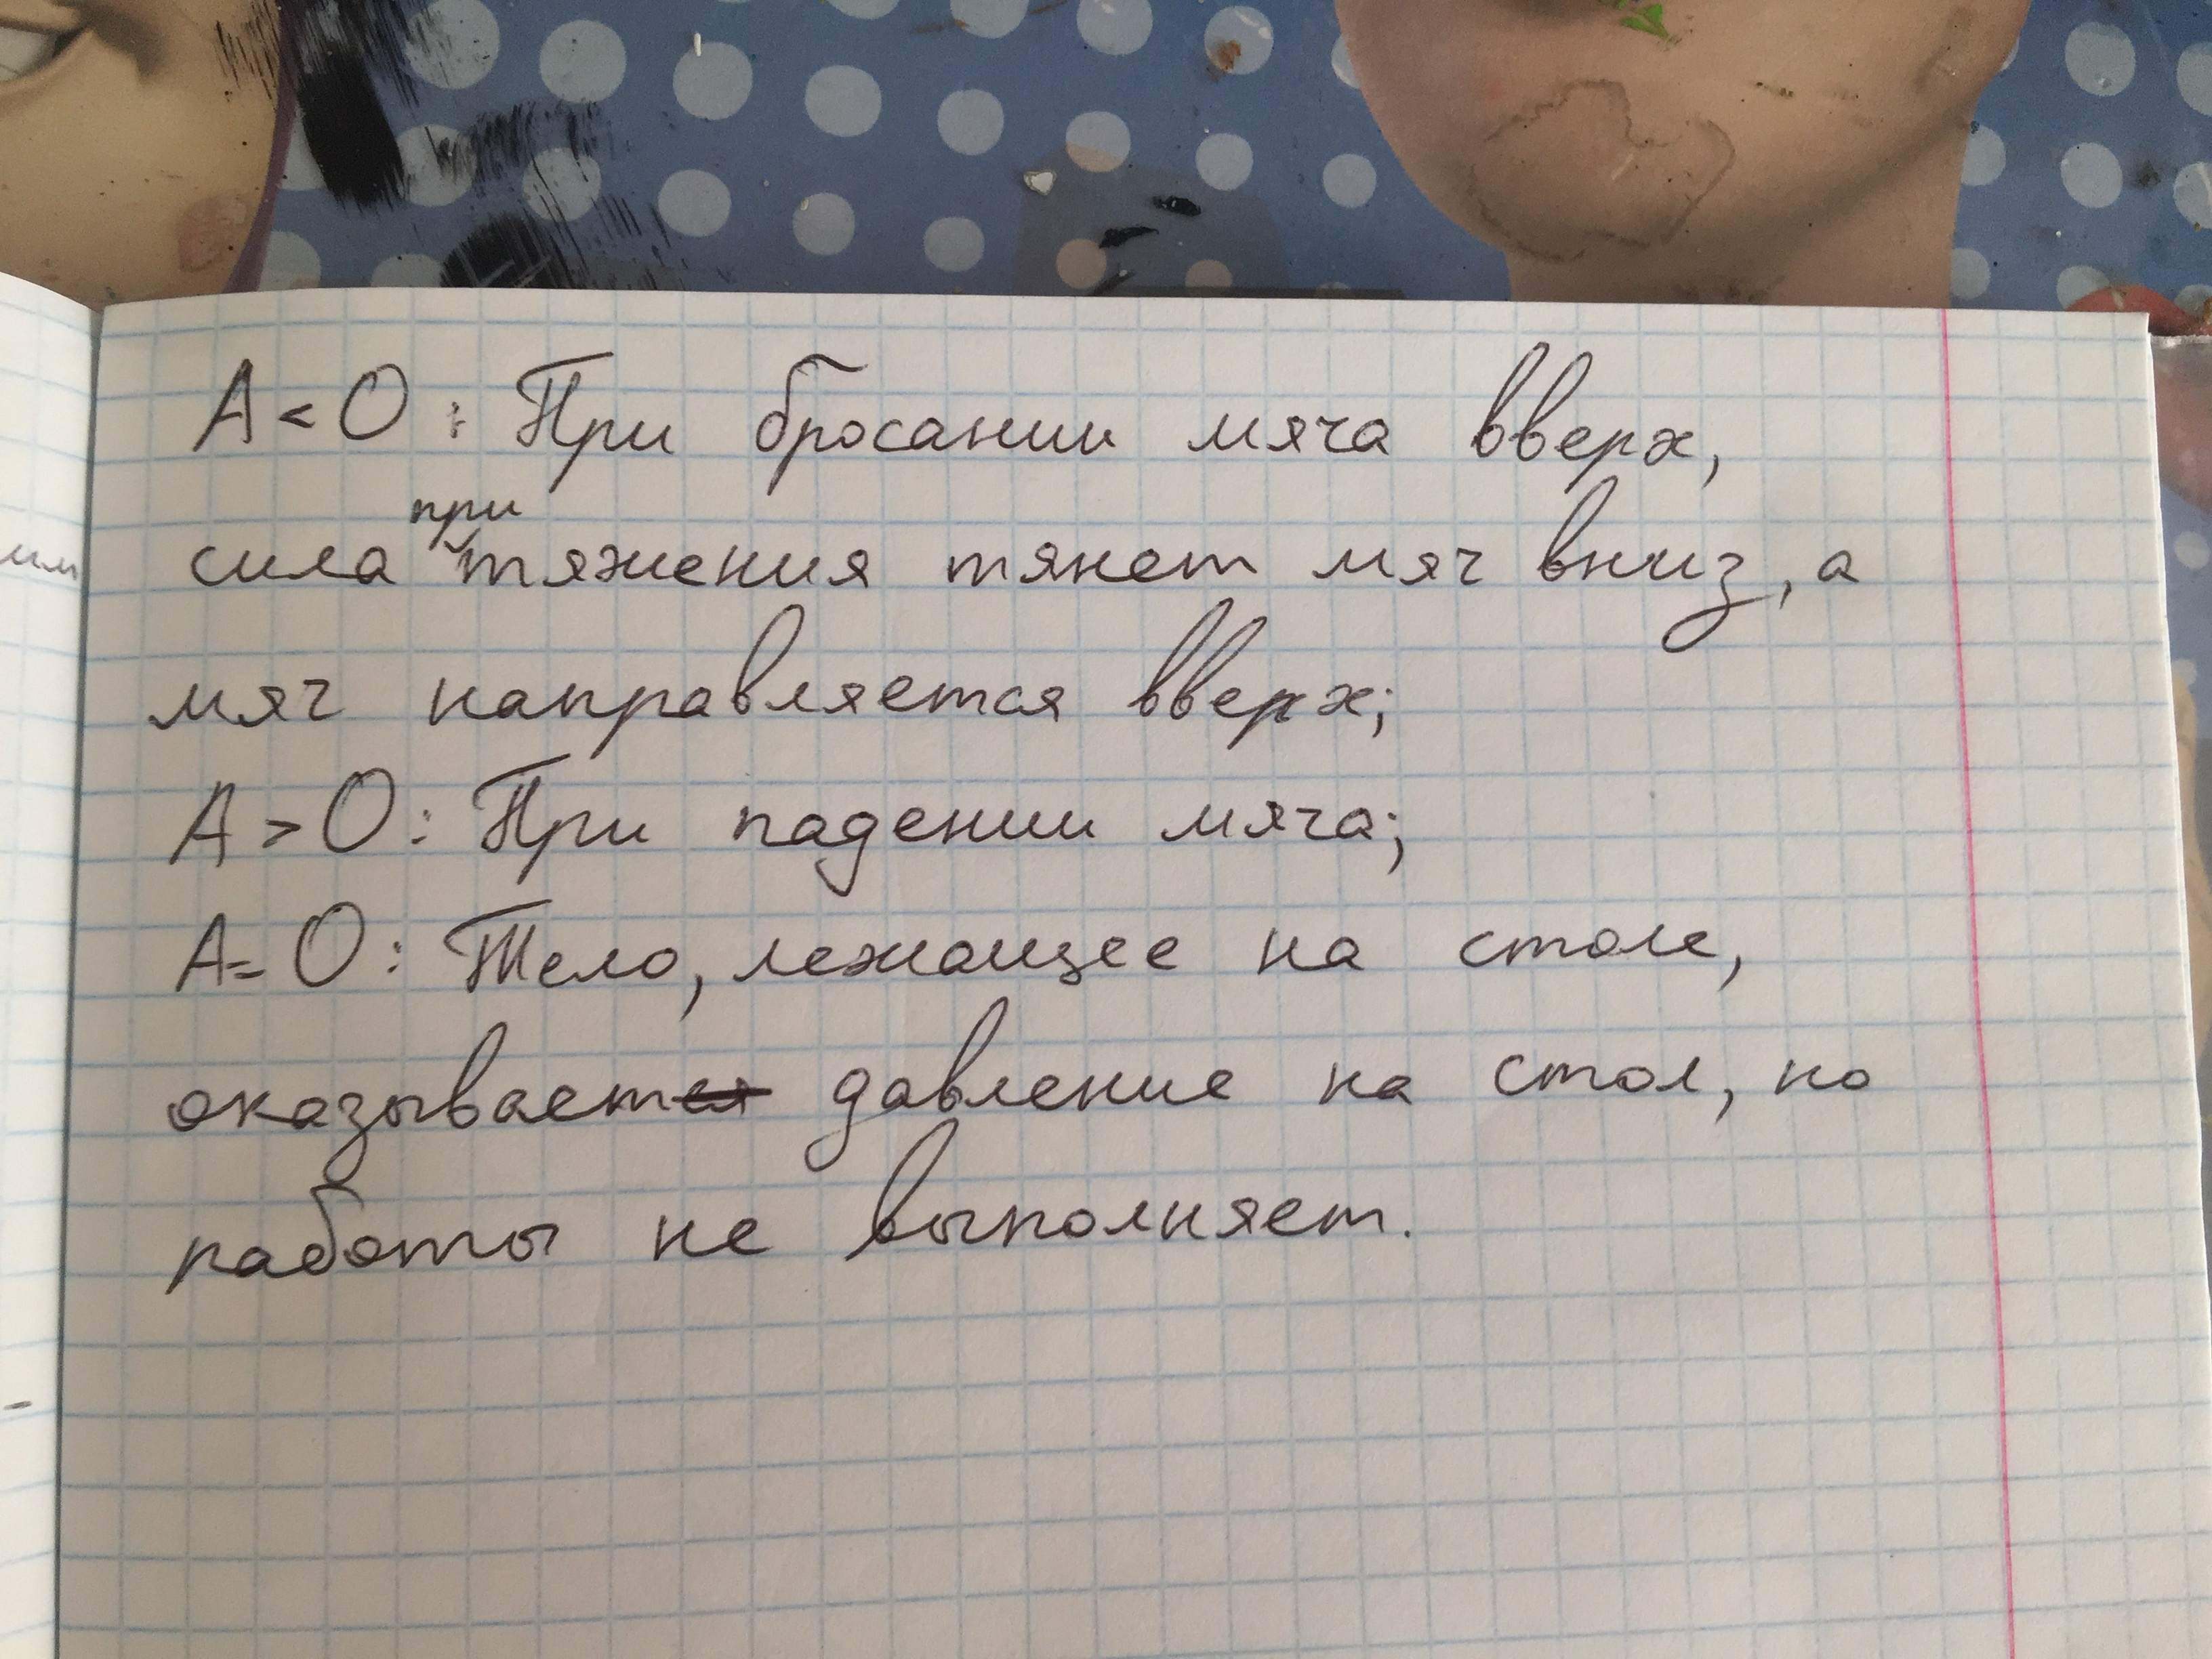 A < 0 : При бросании мяча вверх,
сила притяжения тянет мяч вниз, а
мяч направляется вверх;
A > 0 : При падении мяча;
A = 0 : Тело, лежащее на столе,
оказывает давление на стол, но
работы не выполняет.